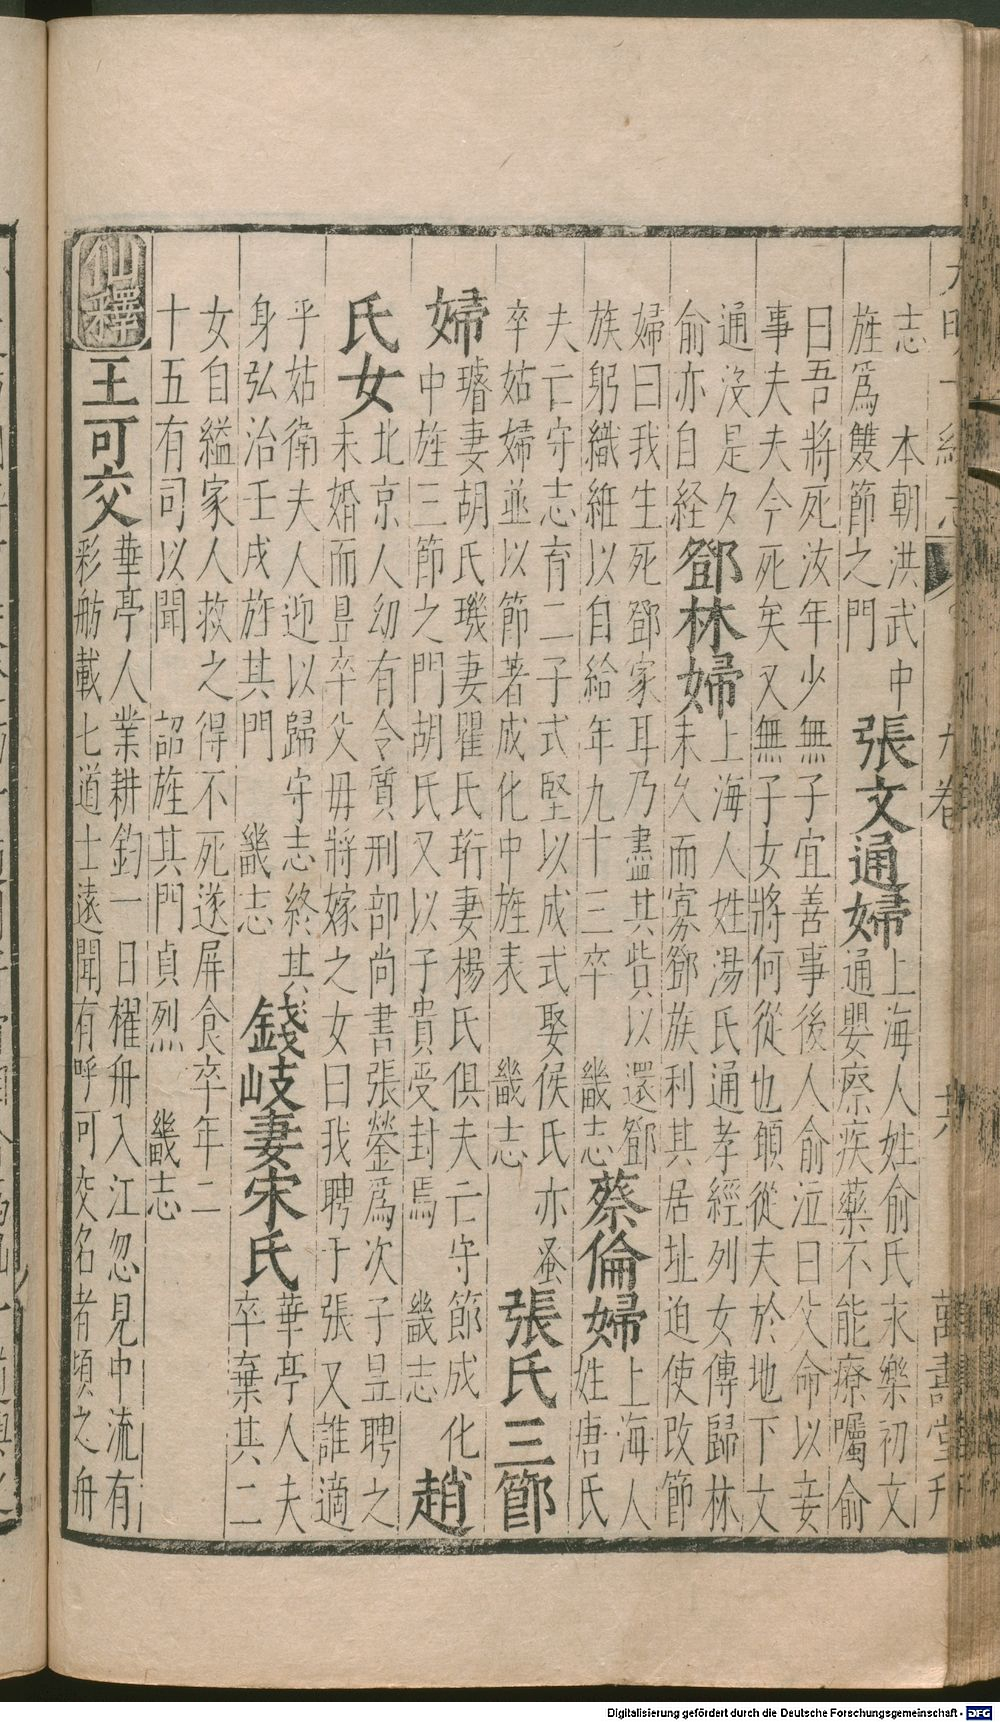 大明一統志 九卷 共 萬壽堂刊
志 本朝洪武中
旌爲雙節之門
張文通婦
上海人姓俞氏永樂初文
通嬰瘵疾藥不能療囑俞
曰吾將死汝年少無子宜善事後人俞泣曰父命以妾
事夫夫今死矣又無子女將何從也願從夫於地下文
通沒是夕
俞亦自経
鄧林婦
上海人姓湯氏通孝經列女傳歸林
未久而寡鄧族利其居址迫使改節
婦曰我生死鄧家耳乃盡其貲以還鄧
族躬織維以自給年九十三卒 畿志
蔡倫婦
上海人
姓唐氏
夫亡守志育二子式堅以成式娶侯氏亦蚤
卒姑婦並以節著成化中旌表 畿志
張氏三節
婦
璿妻胡氏璣妻瞿氏珩妻楊氏俱夫亡守節成化
中旌三節之門胡氏又以子貴受封焉 畿志
趙氏女
北京人幼有令質刑部尚書張鎣爲次子昱聘之
未婚而昱卒父毋將嫁之女曰我聘于張又誰適
乎姑衛夫人迎以歸守志終其
身弘治壬戌旌其門 畿志
錢岐妻宋氏
華亭人夫
卒棄其二
女自縊家人救之得不死遂屏食卒年二
十五有司以聞 詔旌其門貞烈 畿志
仙釋
王可交
華亭人業耕釣一日櫂舟入江忽見中流有
彩舫載七道士遠聞有呼可交名者頃之舟
Digitalisierung gefördert durch die Deutsche Forschungsgemeinschaft - DFG